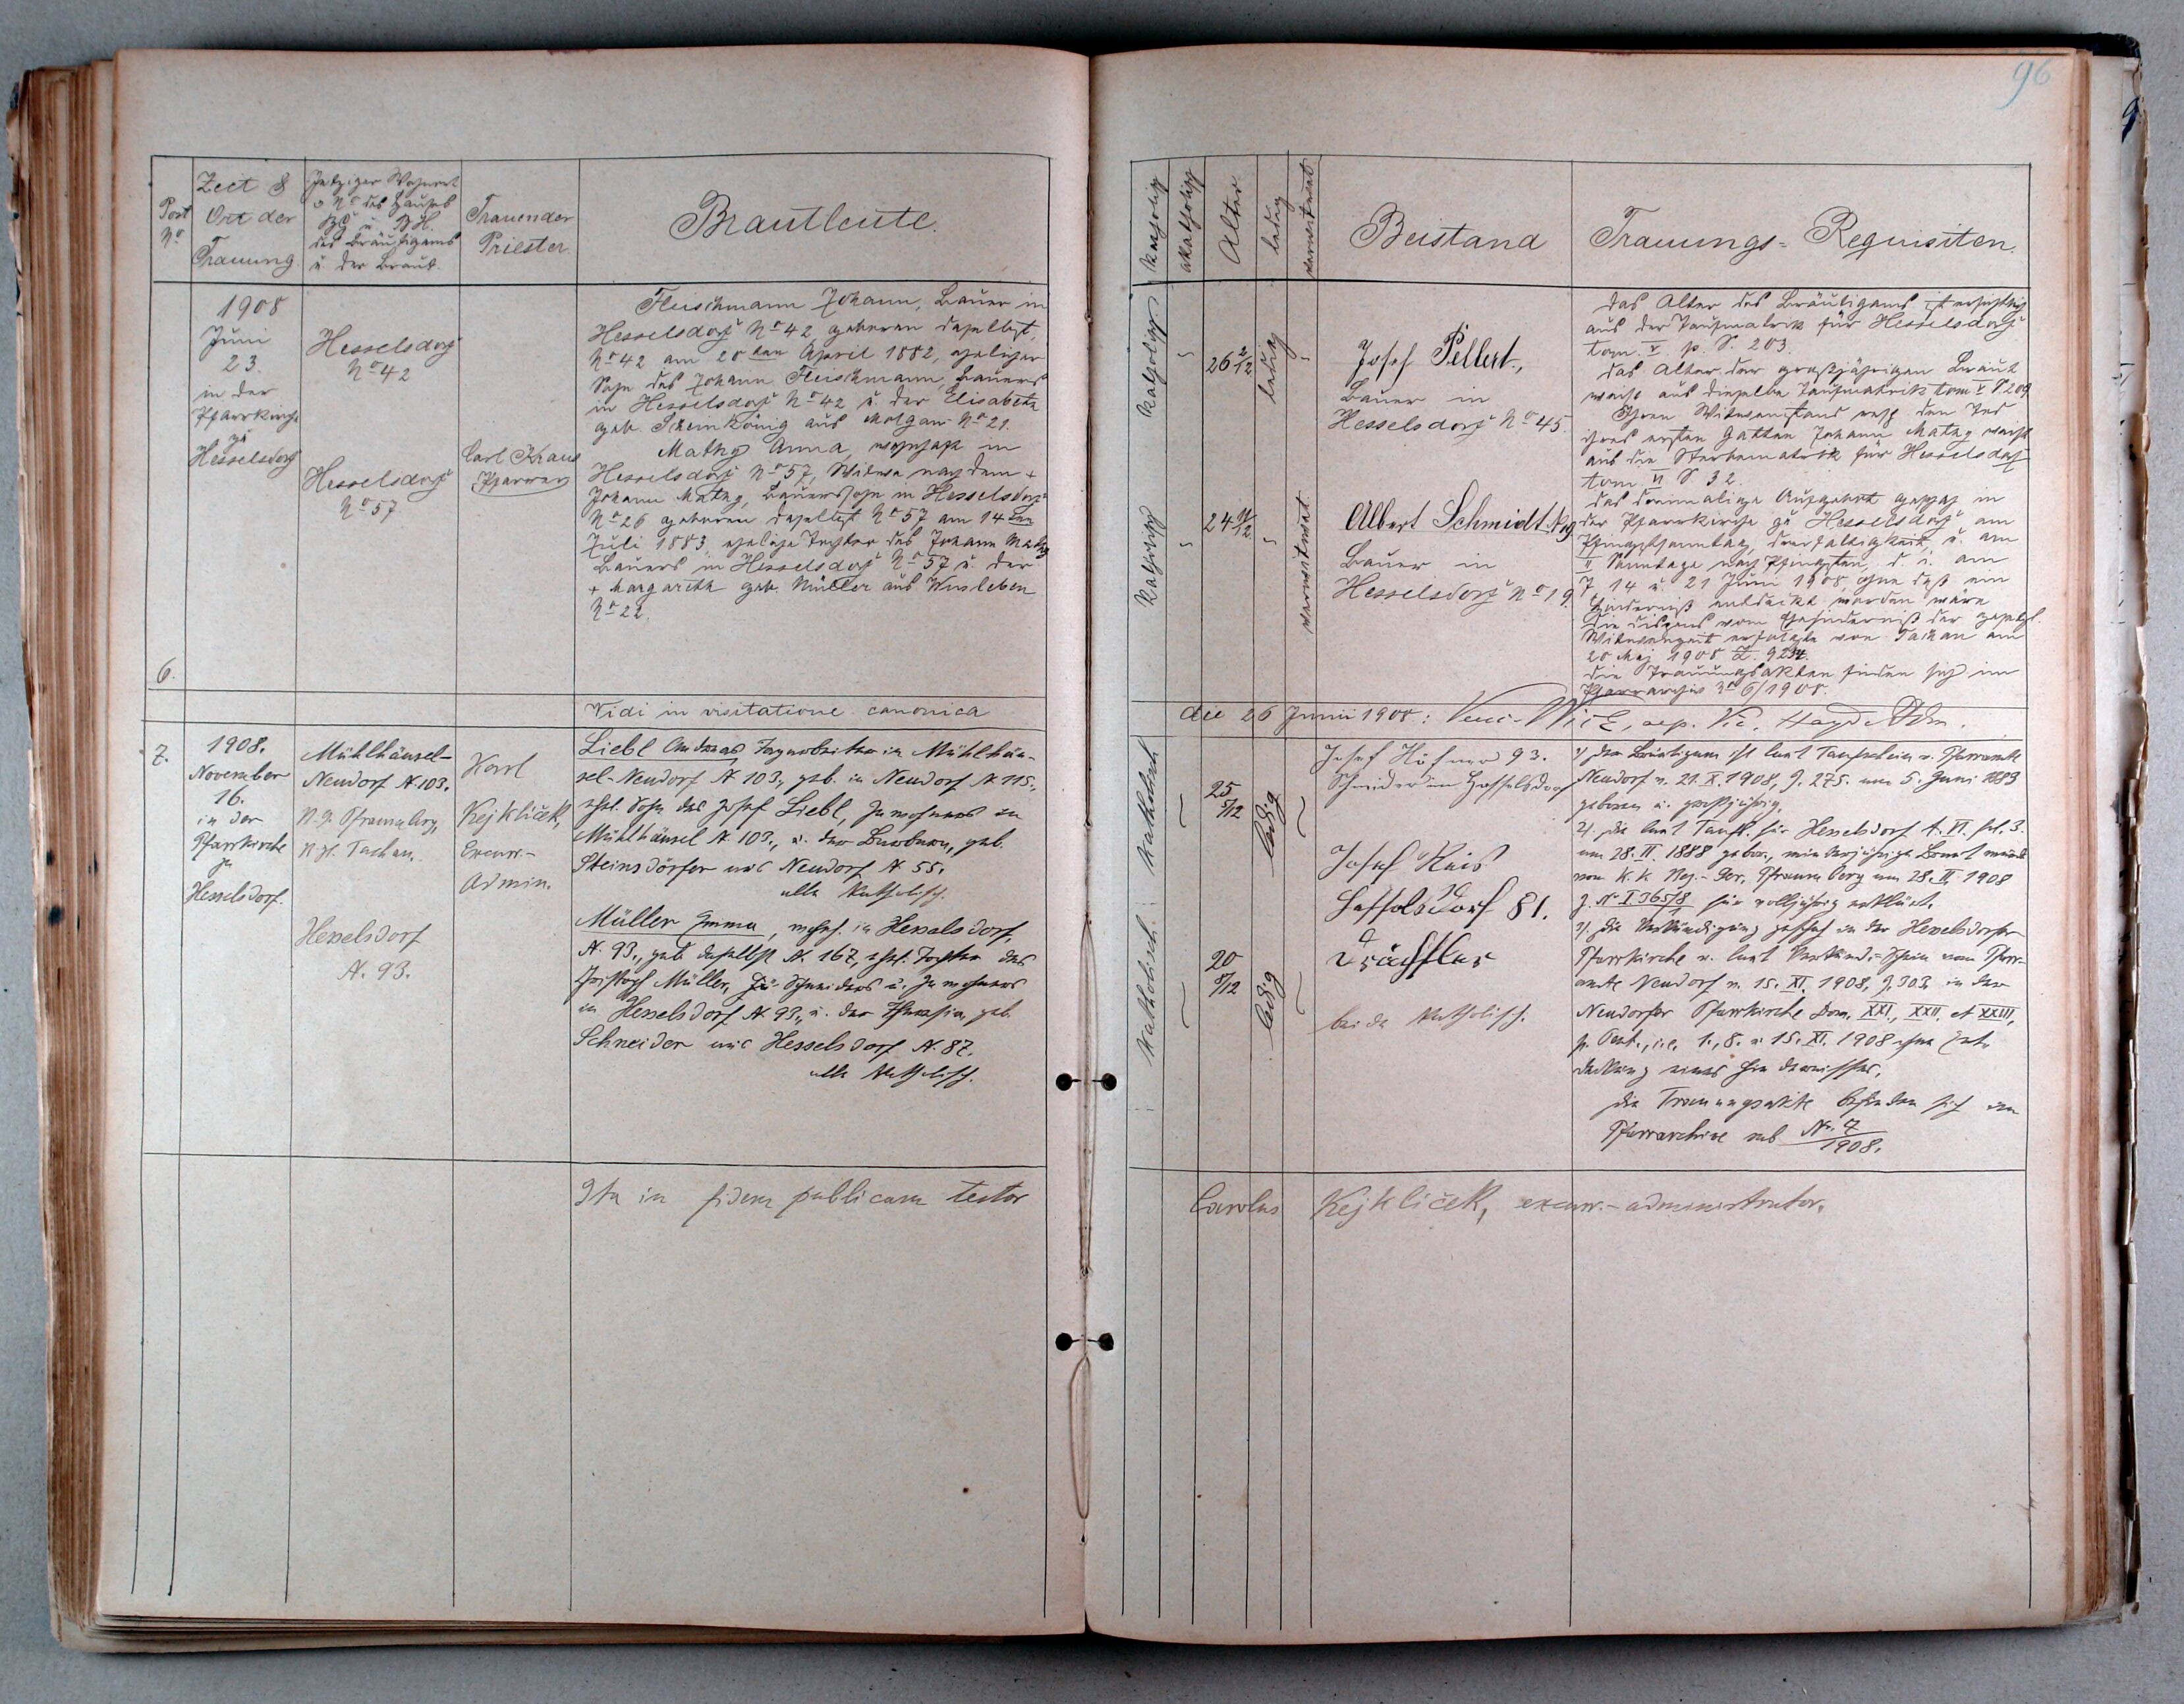 96
Post
No
Zeit &
Ort der
Trauung
Jetziger Wohnort
u No des Hauses
BG u. BH.
des Bräutigams
u. der Braut.
Trauender
Priester
Brautleute.
Katholisch
akatholisch
Alter
ledig
verwitwet
Beistand
Trauungs=Requisiten.
6.
1908
Juni
23.
in der
Pfarrkirche
zu
Hesselsdorf
Hesselsdorf
No 42
Hesselsdorf
No 57
Carl Kraus
Pfarrer
Fleischmann Johann, Bauer in
Hesselsdorf No 42, geboren daselbst
No 42 am 20ten April 1882, ehelicher
Sohn des Johann Fleischmann, Bauers
in Hesselsdorf No 42 u. der Elisabeth
geb. aus No 21.
Mathy Anna, wohnhaft in
Hesselsdorf No 57, Witwe nach dem +
Johann Mathy, Bauerssohn in Hesselsdorf
No 26 geboren daselbst No 57 am 14ten
Juli 1883, eheliche Tochter des Johann Mathy
Bauers in Hesselsdorf No 57 u. der
+ Margareth geb. Müller aus Wusleben
No 22.
Katholisch
26 2/12
ledig
Katholisch
24 11/12
verwitwet
Josef Pellert,
Bauer in
Hesselsdorf No 45.
Albert Schmidt No 19
Bauer in
Hesselsdorf No 19.
Das Alter des Bräutigams ist ersichtlich
aus der Taufmatrik für Hesselsdorf
tom. V. p. S. 203.
Das Alter der großjährigen Braut
weist aus dieselbe Taufmatrik tom V S 209
Ihren Witwenstand resp. den Tod
ihres ersten Gatten Johann Mathy weist
aus die Sterbematrik für Hesselsdorf
tom VI S. 32.
Das dreimalige Aufgebot geschah in
der Pfarrkirche zu Hesselsdorf am
Pfingstsonntag, Dreifaltigkeit, u. am
II Sonntage nach Pfingsten, d. i. am
7, 14 u. 21 Juni 1908, ohne daß ein
Hinderniß entdeckt worden wäre
Die Dispens vom Ehehinderniß der gesetzl.
Witwenzeit erfolgte von Tachau am
20 Mai 1908 Z. 9234.
Die Trauungsakten finden sich im
Pfarrarchiv No 6/1908.
Vidi in visitatione canonica
die 26 Junii 1908:
7.
1908.
November
16.
in der
Pfarrkirche
zu
Hesselsdorf.
Mühlhäusel-
Neudorf N. 103.
B. G. Pfraumberg,
B. H. Tachau.
Hesselsdorf
N. 93.
Karl
Kejkliček,
Excurr.-
Admin.
Liebl Andreas, Tagarbeiter in Mühlhäu-
sel-Neudorf N 103., geb. in Neudorf N 115.,
ehel. Sohn des Josef Liebl, Inwohners in
Mühlhäusel N 103., u. der Barbara, geb.
Steinsdörfer aus Neudorf N 55.
alle katholisch.
Müller Emma, wohnh. in Hesselsdorf,
N. 93., geb. daselbst N. 167, ehel. Tochter des
Christoph Müller, Schneiders u. Inwohners
in Hesselsdorf N. 93., u. der Theresia, geb.
Schneider aus Hesselsdorf N. 87.
alle katholisch.
Katholisch.
25
5/12
ledig
Katholisch.
20
8/12
ledig
Josef Hüfner 93.
Schneider in Hesselsdorf
Josef Reis
Hesselsdorf 81.
Drächsler
beide katholisch.
1) Der Bräutigam ist laut Taufschein v. Pfarramte
Neudorf v. 21. X. 1908, Z. 275. am 5. Juni 1883
geboren u. großjährig.
2). Die laut Taufb. für Hesselsdorf t. VI. fol. 3.
am 28. II. 1888 gebor., minderjährige Braut wurde
vom k. k. Bez.-Ger. Pfraumberg am 28. 1908
Z. N. I 365/8 für volljährig erklärt.
3). Die Verkündigung geschah in der Hesselsdorfer
Pfarrkirche u. laut Verkünd-Schein vom Pfarr-
amte Neudorf v. 15. XI. 1908, Z. 303, in der
Neudorfer Pfarrkirche Dom. XXI., XXII. et XXIII.
p. Pent., i. e. 1., 8. u. 15. XI. 1908 ohne Ent-
deckung eines Hindernisses.
Die Trauungsakte befinden sich im
Pfarrarchive sub Nr. 7
1908.
Ita in fidem publicam testor
Carolus Kejkliček, excurr.-administrator.